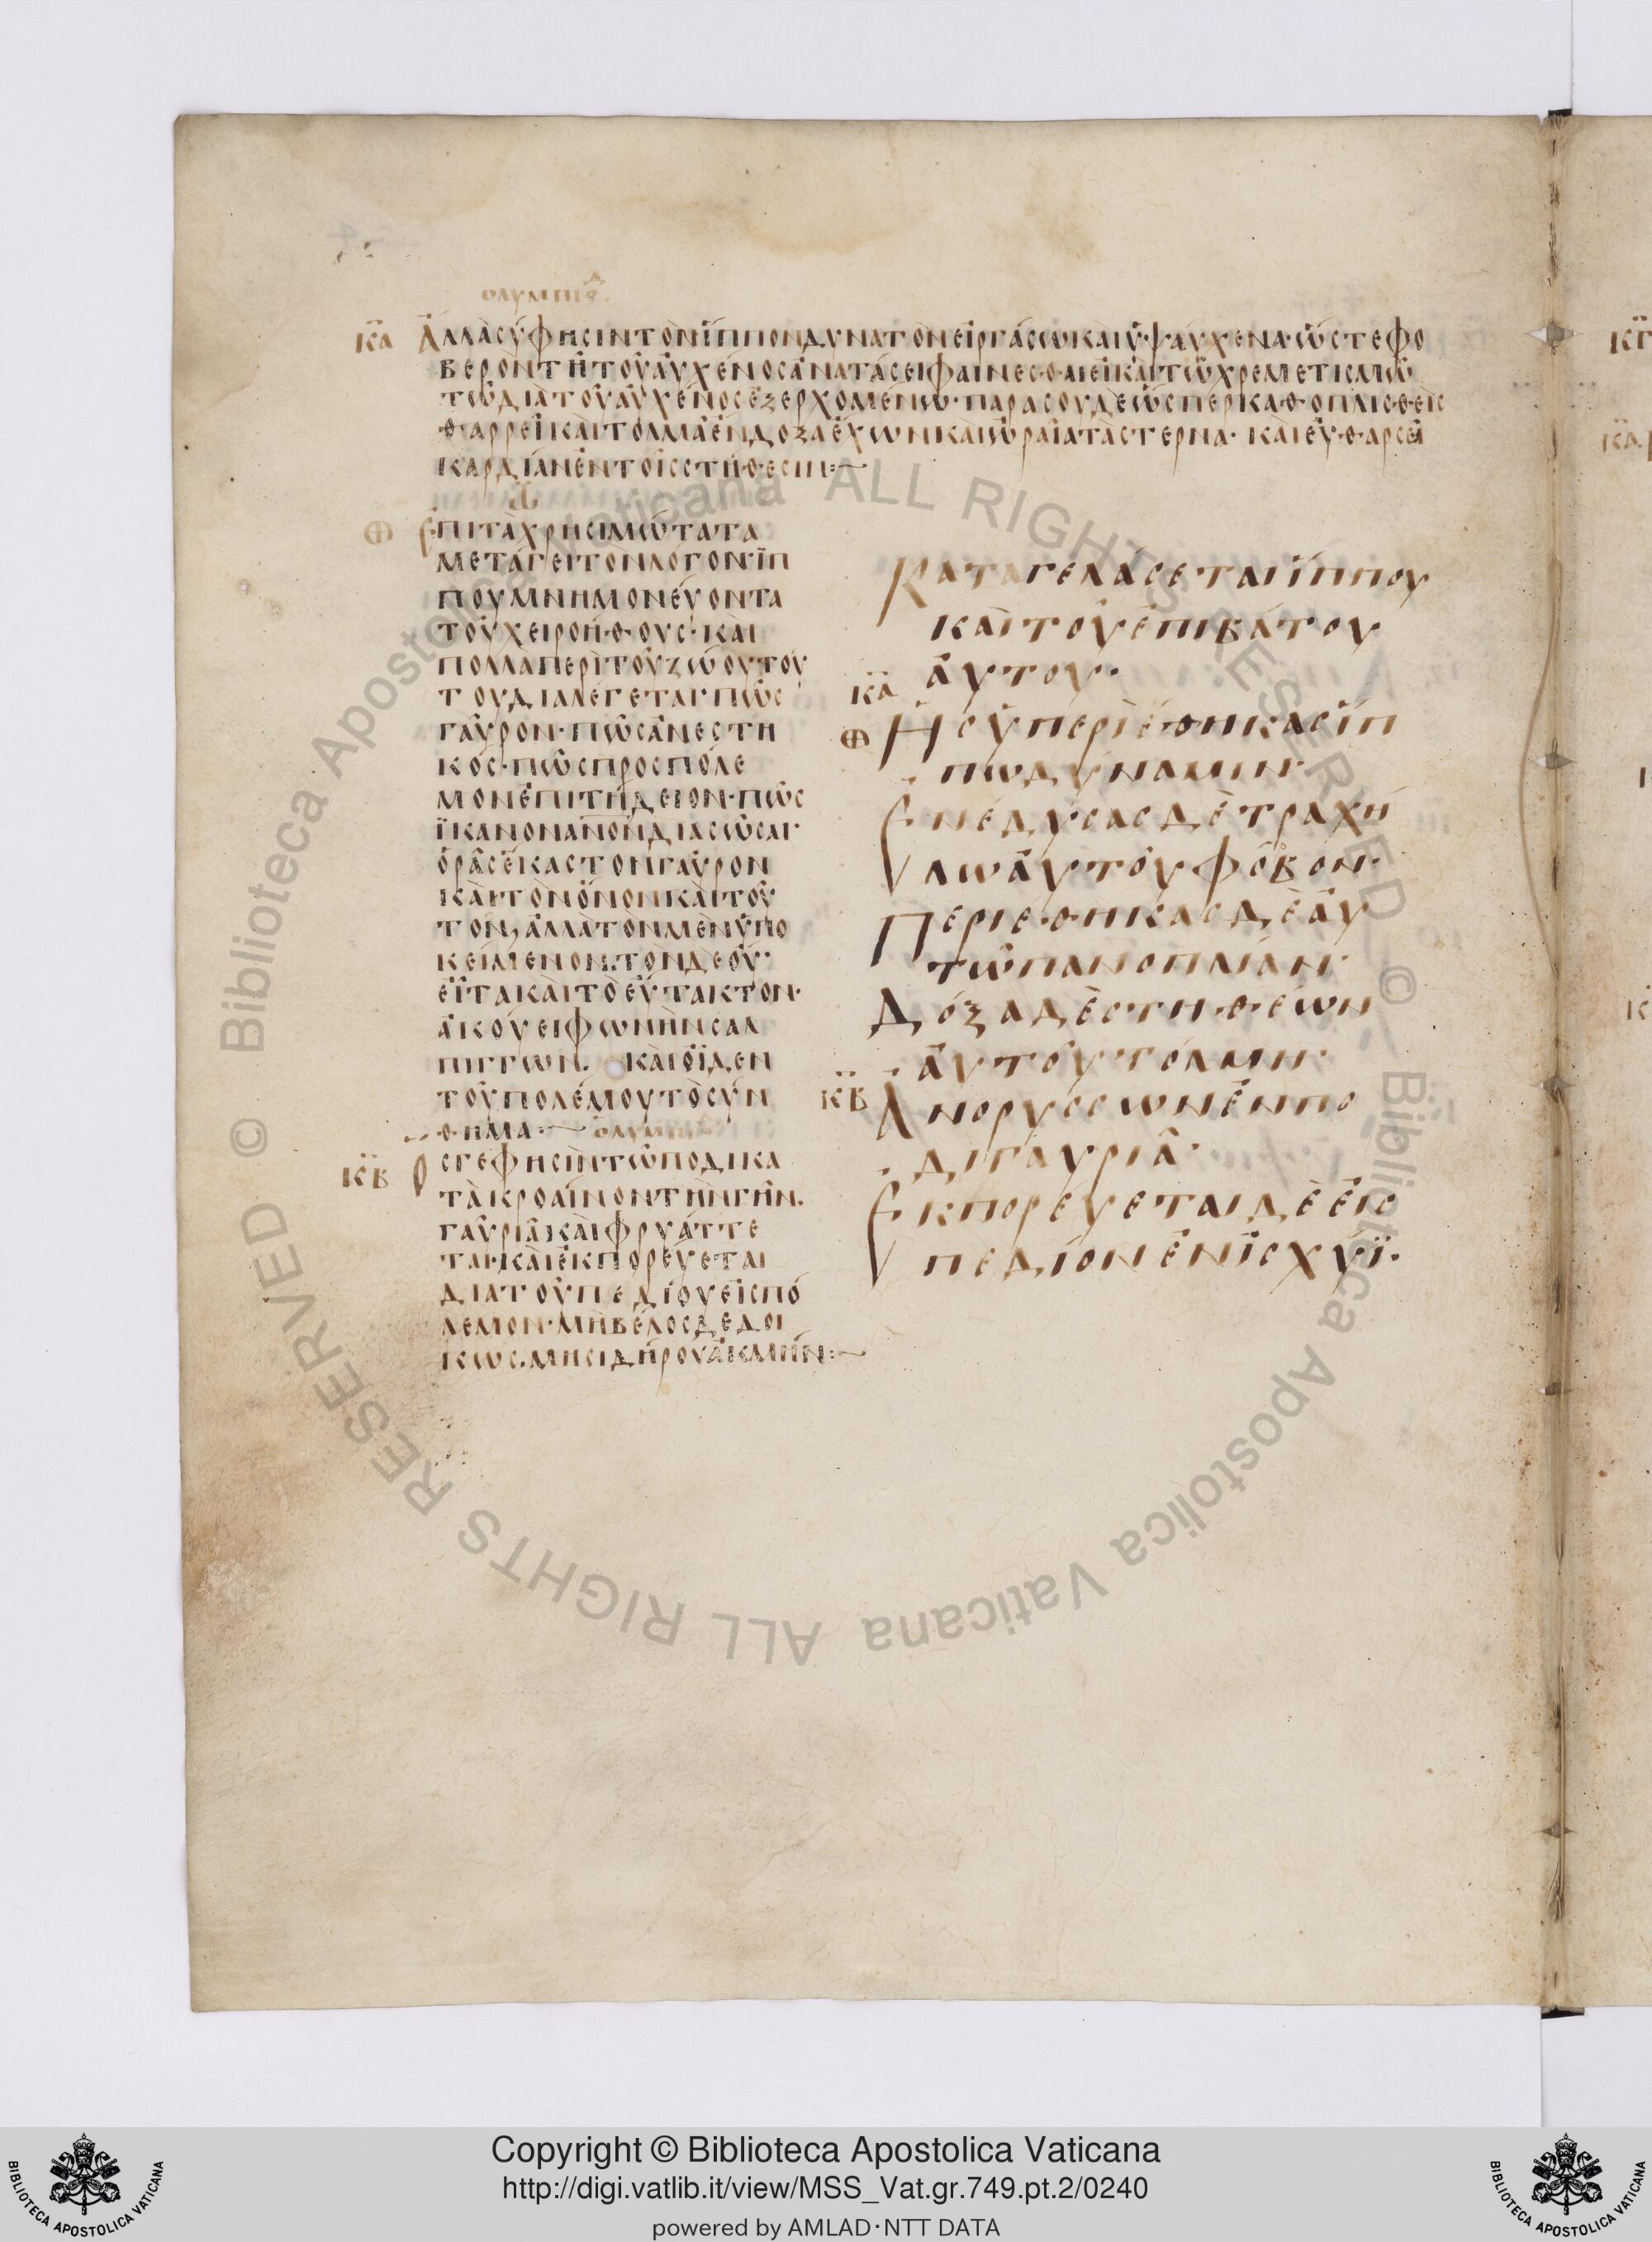 ολυμπιοδ
κ̅α̅ Ἀλλὰ σύ φησιν τὸν ἵππον δυνατὸν εἰργάσω καὶ ὑψαύχενα· ὥστε φο
βερὸν τῇ τοῦ αὐχένος ἀνατάσει φαίνεσθαι εἶ καὶ τῷ χρεμετισμῷ
τῷ διὰ τοῦ αὐχένος ἐξερχομένω· παρὰ σοῦ δὲ ὥσπερ καθοπλισθεὶς
θαρρεῖ καὶ τολμᾶ ἔνδοξα ἔχων καὶ ὡραῖα τὰ στέρνα· καὶ εὐθαρσεῖ
καρδίαν ἐν τοῖς στήθεσιν:~
⊕ Ἐπὶ τὰ χρησιμώτατα
μετάγει τὸν λόγον· ἵπ
που μνημονεύοντα
τοῦ χειροήθους· καὶ
πολλὰ περὶ τοῦ ζώου τού
του διαλέγεται· πῶς
γαῦρον· πῶς ἀνεστη
κός· πῶς πρὸς πόλε
μον ἐπιτήδειον· πῶς
ἱκανὸν ἀνδίασῶσαι·
ὁρᾶς ἕκαστον γαῦρον
καὶ τὸν ὄνον καὶ τοῦ
τον, ἀλλὰ τὸν μὲν ὑπο
κείμενον· τὸν δὲ οὔ·
εἶτα καὶ τὸ εὔτακτον·
ἀκούει φωνὴν σαλ
πίγγων. καὶ οἶδεν
τοῦ πολέμου τὸ σύν
θημα:~ ολυμπι
κ̅β̅ Ὅς γέ φησὶν τῷ ποδὶ κα
τακροαίνον τὴν γῆν.
γαυριᾶ καὶ φρυάττε
ται· καὶ ἐκπορεύεται
διὰ τοῦ πεδίου εἰς πό
λεμον· μὴ βέλος δεδοι
κώς. μὴ σιδήρου ἀκμήν:~
Καταγελάσεται ἵππου
καὶ τοῦ ἐπιβάτου
αὐτοῦ·
κ̅α̅
⊕ Ἢ σὺ περιέθηκας ἵπ
πω δύναμιν·
Ἐνέδυσας δὲ τραχή
λω αὐτοῦ φόβον·
Περιέθηκας δὲ αὐ
τῷ πανοπλίαν·
Δόξα δὲ στηθέων
αὐτοῦ τόλμη·
κ̅β̅ Ἀνορύσσων ἐν πο
δὶ γαυριᾶ·
Ἐκπορεύεται δὲ εἰς
πεδίον ἐν ἰσχύϊ·
Copyright © Biblioteca Apostolica Vaticana
http://digi.vatlib.it/view/MSS_Vat.gr.749.pt.2/0240
powered by AMLAD·NTT DATA
BIBLIOTECA APOSTOLICA VATICANA
BIBLIOTECA APOSTOLICA VATICANA
© Biblioteca Apostolica Vaticana ALL RIGHTS RESERVED
© Biblioteca Apostolica Vaticana ALL RIGHTS RESERVED